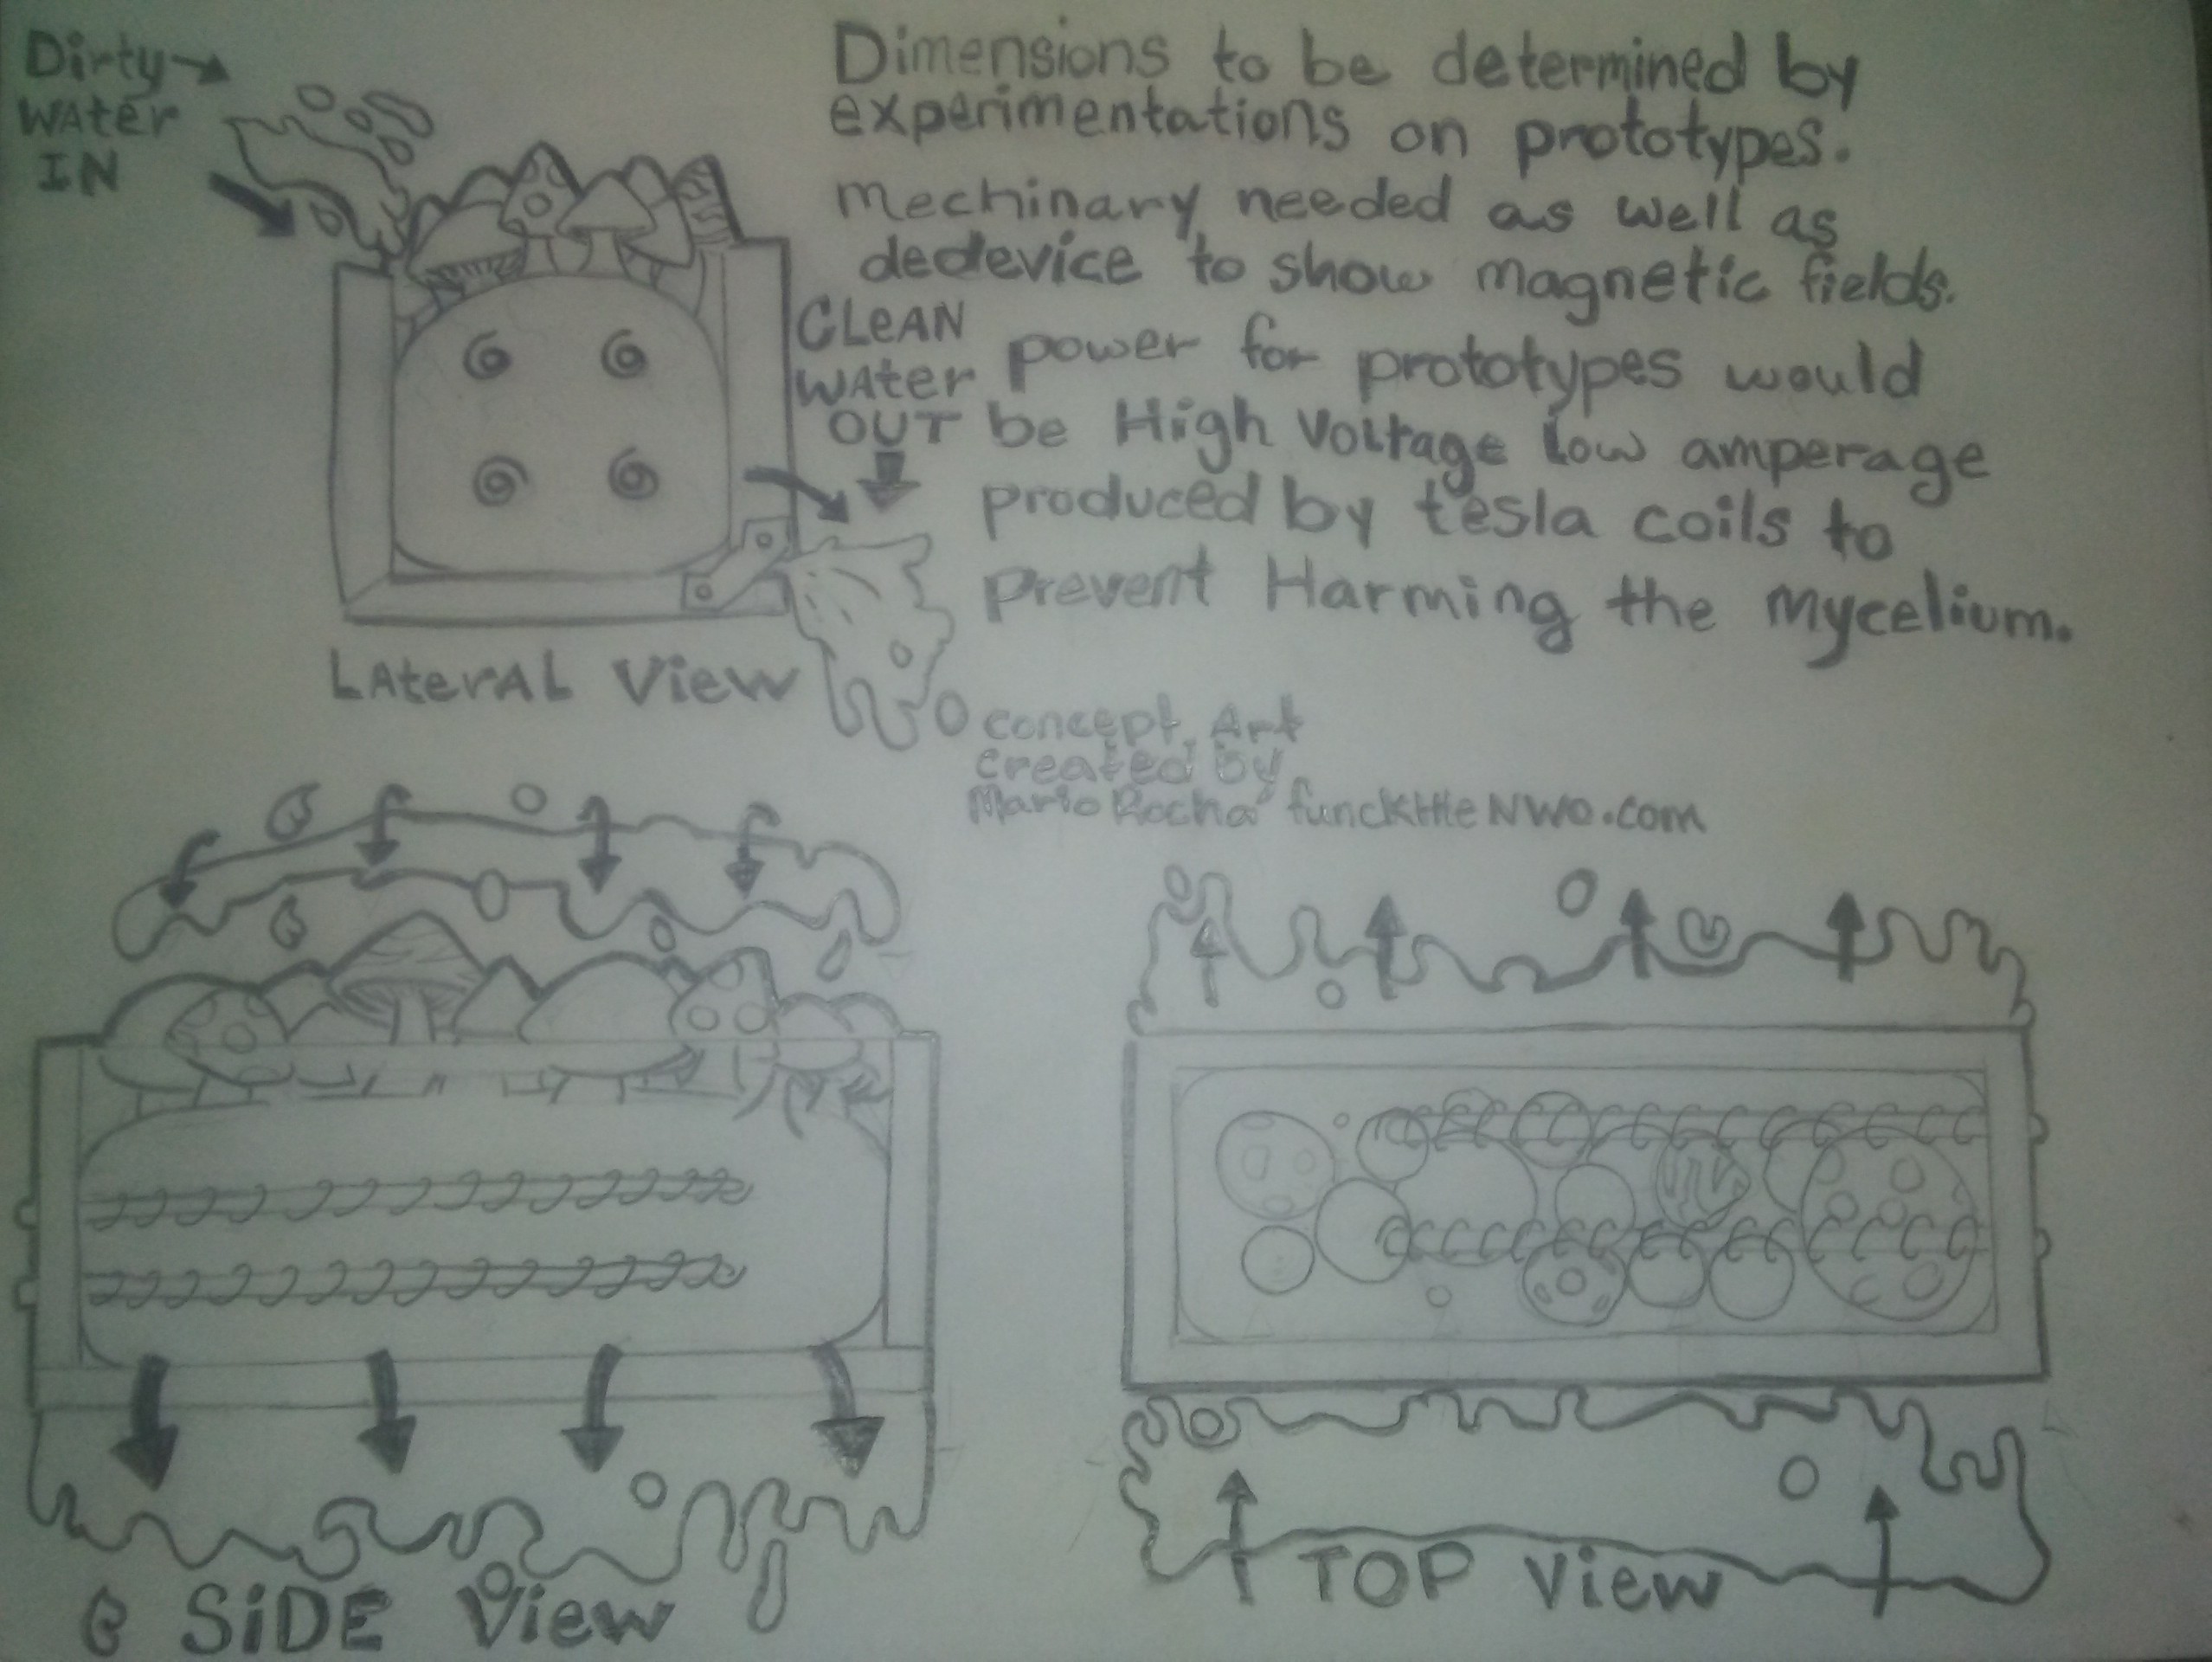 Dirty
WAter
IN
Dimensions to be determined by
experimentations on prototypes.
mechinary needed as well as
dedevice to show magnetic fields.
CLEAN
WAter
OUT
power for prototypes would
be High Voltage Low amperage
produced by tesla coils to
prevent Harming the Mycelium.
LAterAL View
concept Art
created by
Mario Rocha funckttleNWO.com
SiDE View
TOP View